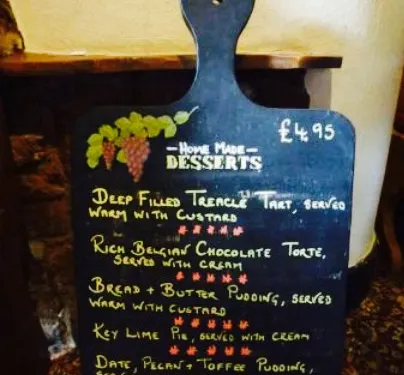 £4.95
— HOME MADE —
DESSERTS
DEEP FILLED TREACLE TART, SERVED
WARM WITH CUSTARD
RICH BELGIAN CHOCOLATE TORTE,
SERVED WITH CREAM
BREAD + BUTTER PUDDING, SERVED
WARM WITH CUSTARD
KEY LIME PIE, SERVED WITH CREAM
DATE, PECAN + TOFFEE PUDDING,